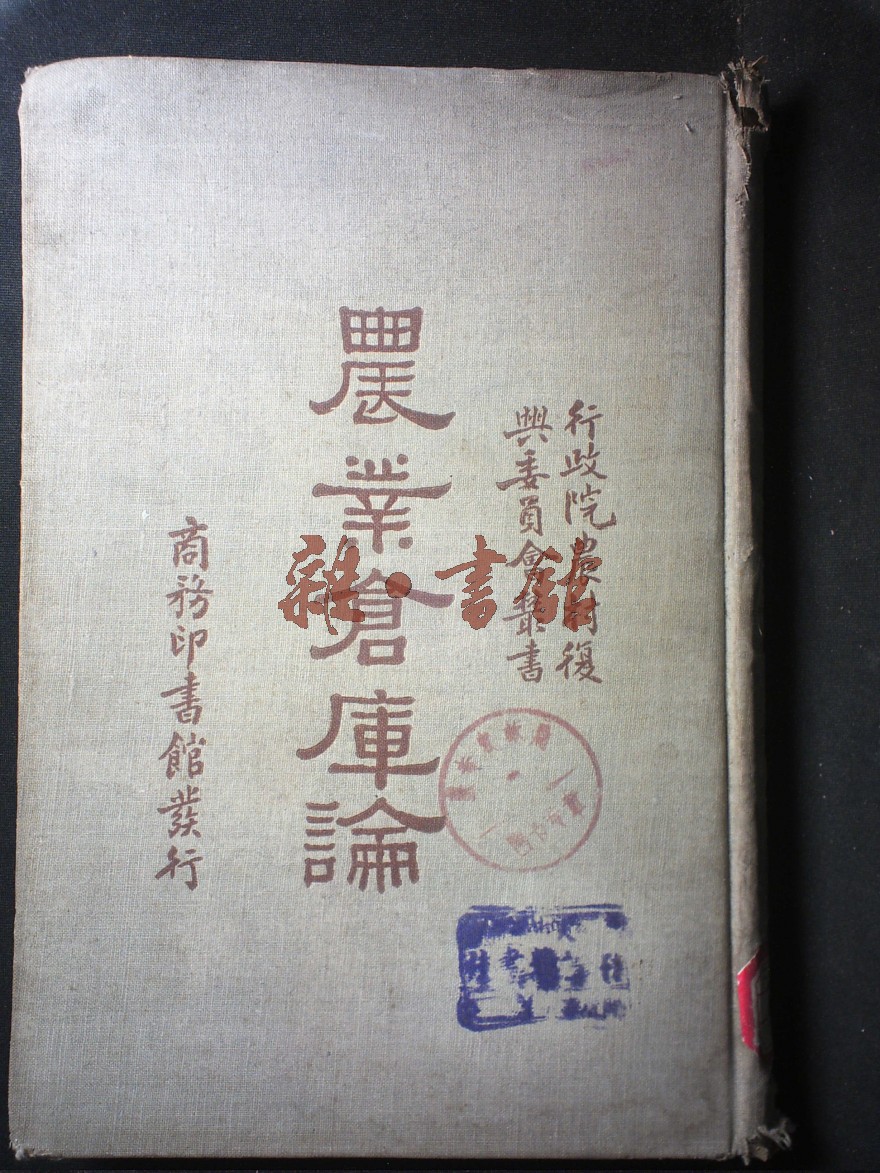 行政院農村復
興委員會叢書
農業倉庫論
商務印書館發行
雜·書館